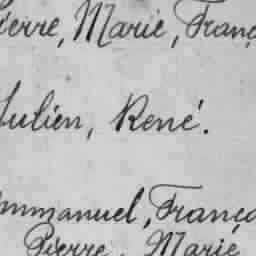 Pierre, Marie, Franç
Julien, René.
Emmanuel, França
Pierre, Marie